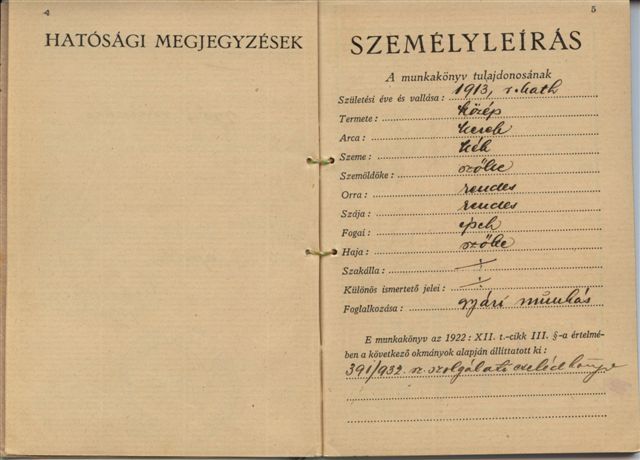 4
HATÓSÁGI MEGJEGYZÉSEK
5
SZEMÉLYLEÍRÁS
A munkakönyv tulajdonosának
Születési éve és vallása: 1913, r. kath
Termete: közép
Arca: kerek
Szeme: kék
Szemöldöke: szőke
Orra: rendes
Szája: rendes
Fogai: épek
Haja: szőke
Szakálla: ÷
Különös ismertető jelei: ÷
Foglalkozása: gyári munkás
E munkakönyv az 1922: XII. t.-cikk III. §-a értelmé-
ben a következő okmányok alapján állíttatott ki:
391/932. sz. szolgálati cselédkönyve